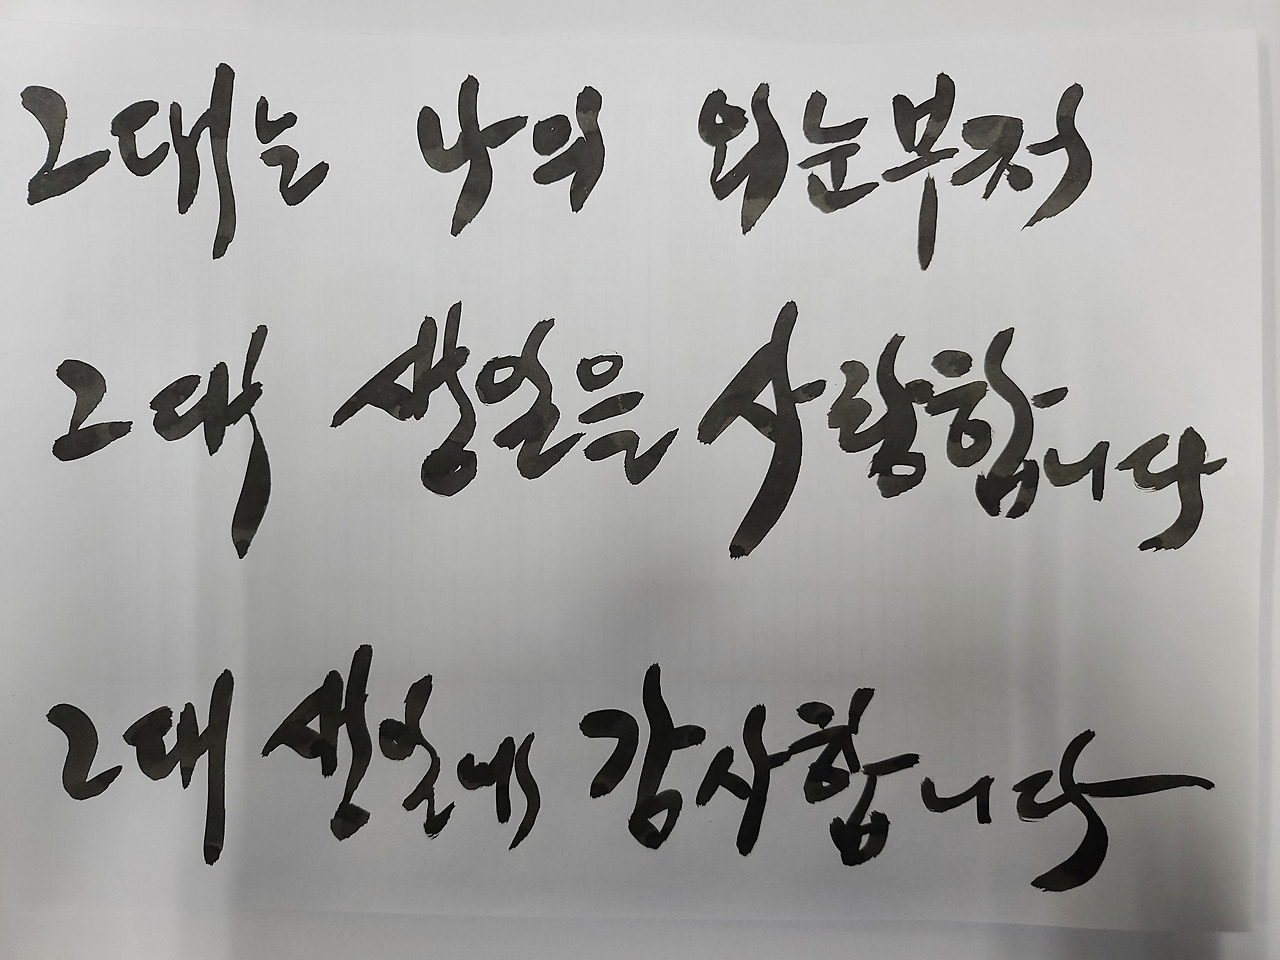 그대는 나의 외눈부처
그대 생일을 사랑합니다
그대 생일에 감사합니다